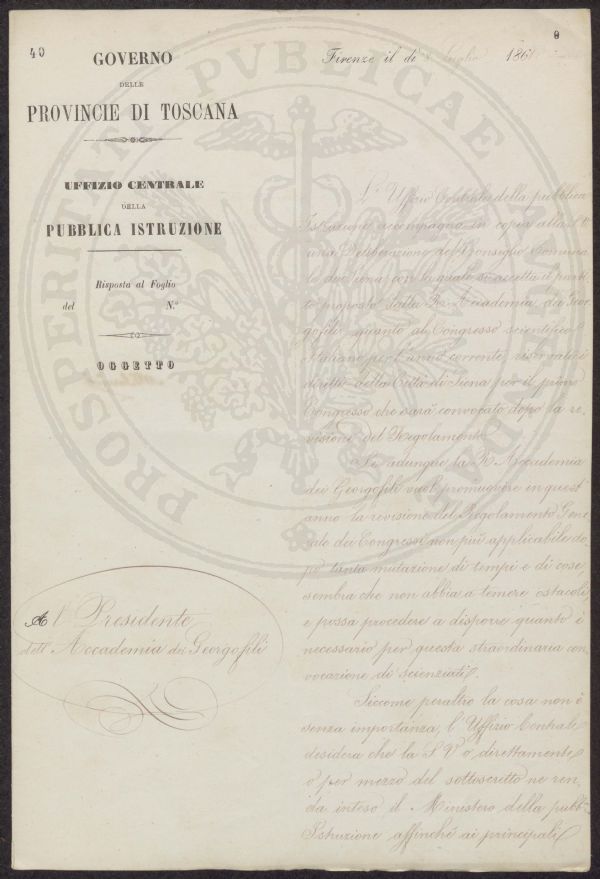 40
8
GOVERNO
DELLE
PROVINCIE DI TOSCANA
UFFIZIO CENTRALE
DELLA
PUBBLICA ISTRUZIONE
Risposta al Foglio
del N.º
OGGETTO
Al Presidente
dell'Accademia dei Georgofili
Firenze il dì Luglio 1861
L'Uffizio Centrale della pubblica
Istruzione accompagna in copia alla S V
una Deliberazione del Consiglio Comuna
le di Siena con la quale si accetta il parti
to proposto dalla R. Accademia dei Geor
gofili quanto al Congresso scientifico
Italiano per l'anno corrente, riservati i
diritti della Città di Siena per il primo
Congresso che sarà convocato dopo la re-
visione del Regolamento.
Se adunque la R. Accademia
dei Georgofili vuol promuovere in quest'
anno la revisione del Regolamento Gene
rale dei Congressi non più applicabile do
po tanta mutazione di tempi e di cose
sembra che non abbia a temere ostacoli
e possa procedere a disporre quanto è
necessario per questa straordinaria con
vocazione di scienziati.
Siccome peraltro la cosa non è
senza importanza, l'Uffizio Centrale
desidera che la S V o direttamente
o per mezzo del sottoscritto ne ren
da inteso il Ministero della pubb.
Istruzione affinché ai principali
PROSPERITATI PUBLICAE AUGENDAE